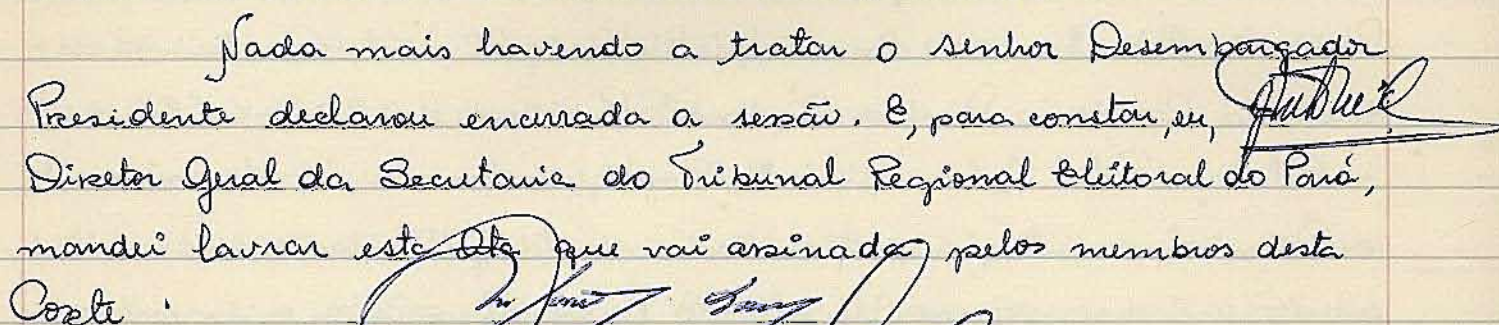 Nada mais havendo a tratar o senhor Desembargador
Presidente declarou encerrada a sessão. E, para constar, eu,
Diretor Geral da Secretaria do Tribunal Regional Eleitoral do Pará,
mandei lavrar esta Ata que vai assinada pelos membros desta
Corte.